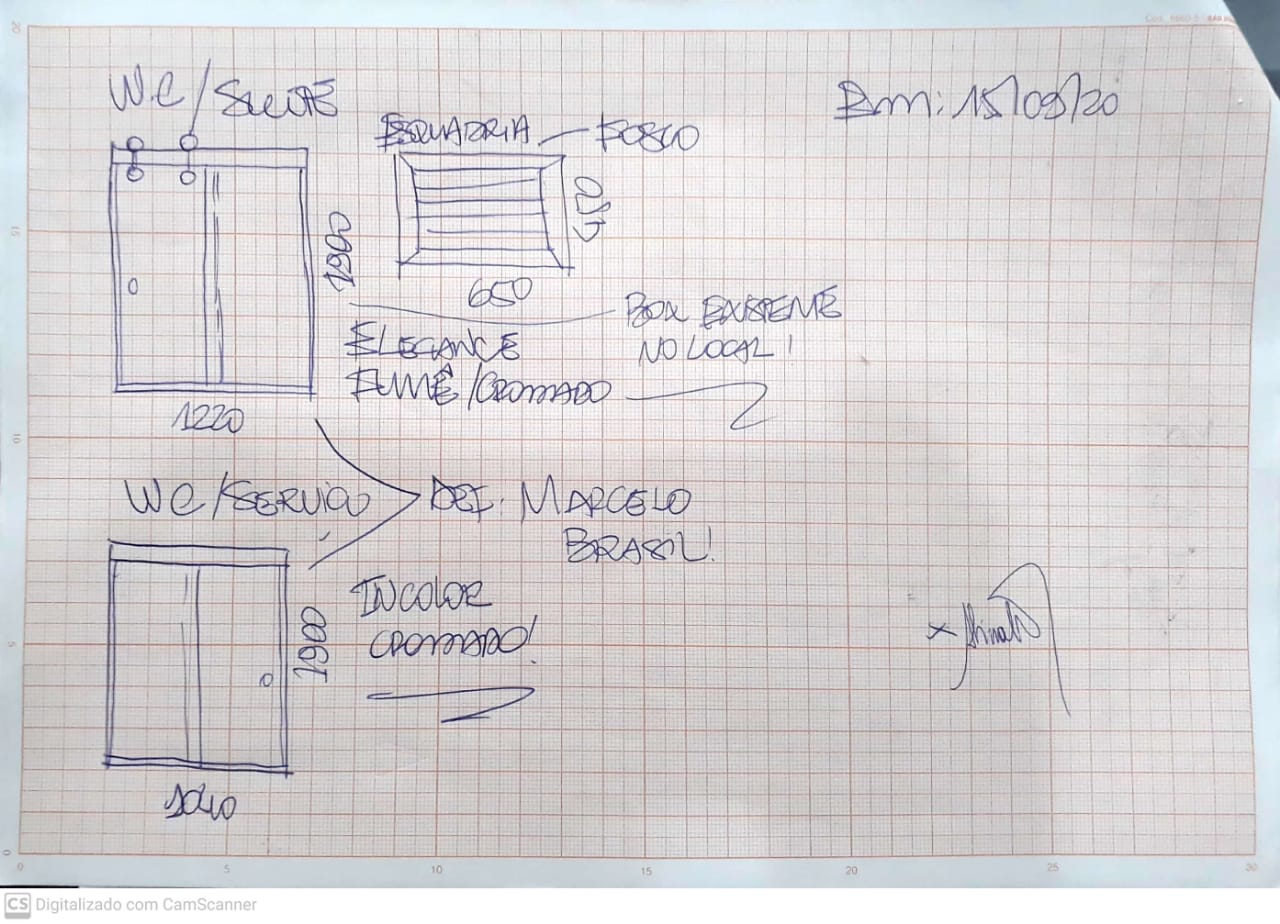 W.C/SUITE
Em: 15/09/20
ESQUADRIA — FOSCO
450
650
1900
BOX EXISTENTE
NO LOCAL!
ELEGANCE
FUMÊ/CROMADO
1220
WC/SERVIÇO
DEF: MARCELO
BRASIL!
INCOLOR
CROMADO!
1900
1040
x
20
15
10
5
0
0 5 10 15 20 25 30
CS Digitalizado com CamScanner